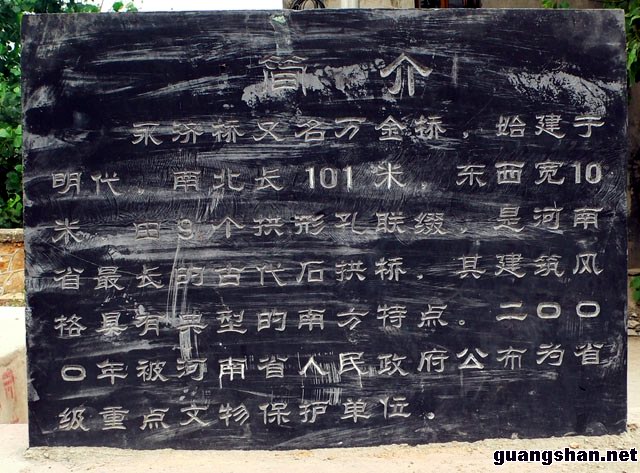 简介
永济桥又名万金桥，始建于
明代，南北长101米，东西宽10
米，由9个拱形孔联缀，是河南
省最长的古代石拱桥，其建筑风
格具有典型的南方特点。二〇〇
〇年被河南省人民政府公布为省
级重点文物保护单位。
guangshan.net